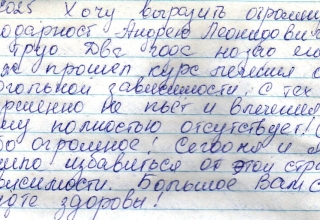 2025 Хочу выразить огромну
одарност Андрею Леонидови
труд Два года назад
прошел курс лечения
гольной зависимости. С тех
ершенно не пьет и влечение
му полностью отсутствует!
бо огромное! Сегодня
избавиться от этой стр
висимости. Большое Вам с
дьте здоровы!